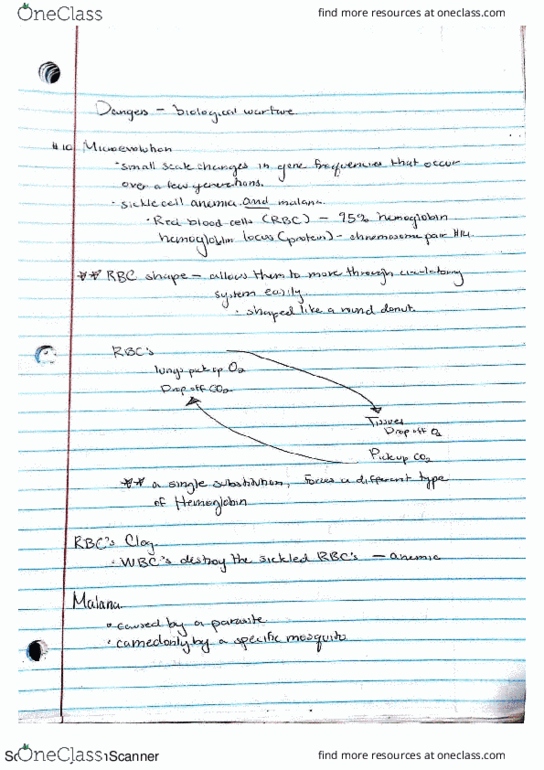 OneClass find more resources at oneclass.com
Dangers - biological warfare.
#10 Microevolution
· small scale changes in gene frequencies that occur
over a few generations.
· sickle cell anemia and malaria.
· Red blood cells (RBC) - 95% hemoglobin
hemoglobin locus (protein) - chromosome pair #14.
** RBC shape - allows them to move through circulatory
system easily.
· shaped like a round donut.
RBC's
lungs pick up O2
Drop off CO2.
Tissues
Drop off O2
Pick up CO2
** a single substitution, a different type
of Hemoglobin
RBC's Clog.
· WBC's destroy the sickled RBC's - anemia
Malaria
· caused by a parasite
· carried only by a specific mosquito
OneClass Scanner find more resources at oneclass.com